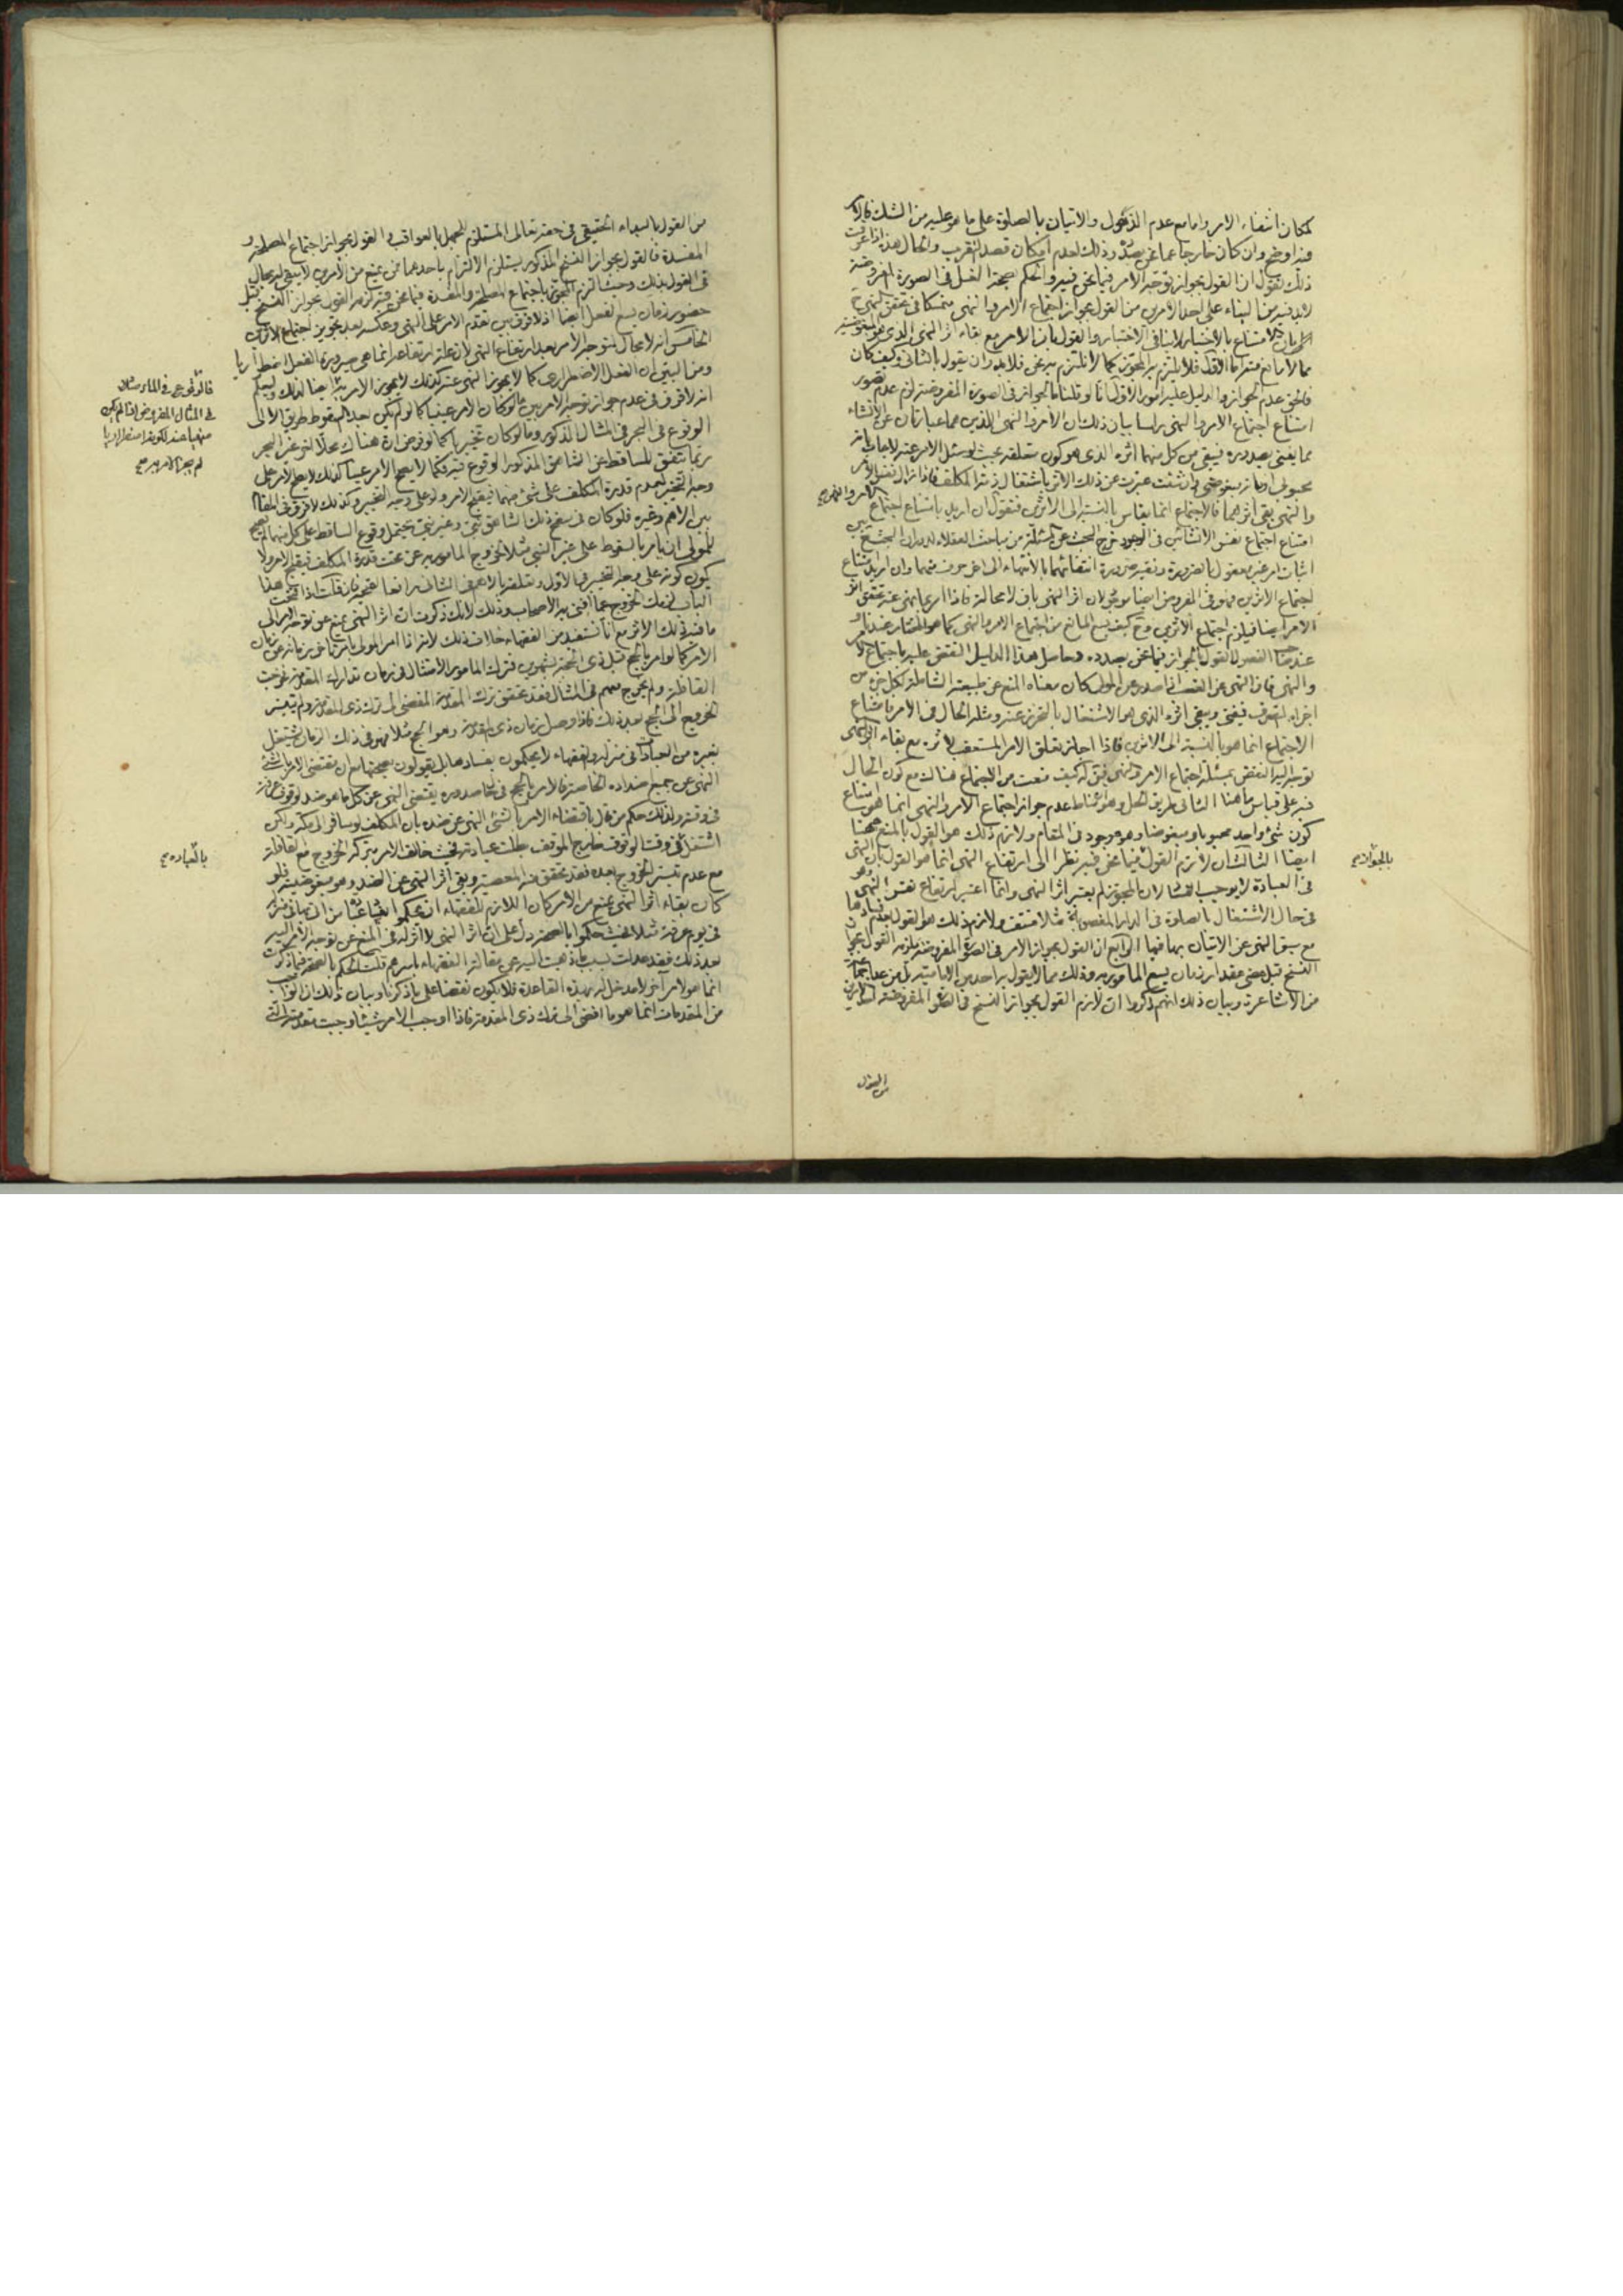 لمكان انتفاء الامر واما مع عدم الذهول والاتيان بالصلوة على ما هو عليه من الشك فالامر
فيه اوضح وان كان خارجا عما نحن بصدده وذلك لعدم امكان قصد التقرب والحال هذا اذا عرفت
ذلك نقول ان القول بجواز توجه الامر فيما نحن فيه والحكم بصحة الغسل فى الصورة المفروضة
لابد فيه من البناء على احد الامرين من القول بجواز اجتماع الامر والنهى
الامتناع بالاختيار لاينافى الاختيار والقول بان الامر مع بقاء اثر النهى الذى هو المبغوضية
مما لا مانع منه اما الاول فلا يلتزم به المجوز كما لا نلتزم به نحن فلابد وان يقول بالثانى وكيف كان
فالحق عدم الجواز والدليل عليه امور الاول انا لو قلنا بالجواز فى الصورة المفروضة لزم عدم تصوير
امتناع اجتماع الامر والنهى راسا بيان ذلك ان الامر والنهى اللذين هما عبارتان عن الانشاء
مما يفنى بصدوره فيبقى من كل منهما اثره الذى هو كون متعلقه بحيث لو سئل الامر عنه لاجاب بانه
محبوبى او بانه مبغوضى وان شئت عبرت عن ذلك الاثر باشتغال ذمة المكلف فاذا زال نفس الامر
والنهى بقى اثرهما فالاجتماع انما يقاس بالنسبة الى الاثرين فنقول ان اريد بامتناع اجتماع الامر والنهى
امتناع اجتماع نفس الانشائين فى الوجود خرج البحث عن المسئلة من مباحث العقلاء
اثبات امر غير معقول بالضرورة ونفيه ضرورة انتفائهما بالانتهاء الى اخر حرف منهما وان اريد امتناع
اجتماع الاثرين فهو فى المفروض ايضا موجود لان اثر النهى باق لا محالة فاذا امر بما نهى عنه تحقق اثر
الامر ايضا فيلزم اجتماع الاثرين وح كيف يسع المانع من اجتماع الامر والنهى كما هو المختار عندنا و
عند صا الفصول القول بالجواز فيما نحن بصدده وحاصل هذا الدليل النقض عليه باجتماع الامر
والنهى فان النهى عن الغصب اذا صدر عن المولى كان معناه المنع عن طبيعته الشاملة لكل جزء من
اجزاء التصرف فيفنى ويبقى اثره الذى هو الاشتغال بالتحرز عنه ومثله الحال فى الامر فامتناع
الاجتماع انما هو بالنسبة الى الاثرين فاذا جاز تعلق الامر المستعقب لاثره مع بقاء اثر النهى
توجه اليه النقض بمسئلة اجتماع الامر والنهى فيق له كيف منعت من الاجتماع هناك مع كون الحال
فيه على قياس ما هنا الثانى طريق الحل وهو ان مناط عدم جواز اجتماع الامر والنهى انما هو امتناع
كون شئ واحد محبوبا ومبغوضا وهو موجود فى المقام ولازم ذلك هو القول بالمنع ههنا
ايضا الثالث ان لازم القول بالجواز فيما نحن فيه نظرا الى ارتفاع النهى انما هو القول بان النهى
فى العبادة لا يوجب الفساد لان المجوز لم يعتبر اثر النهى وانما اعتبر ارتفاع نفس النهى وهو
فى حال الاشتغال بالصلوة فى الدار المغصوبة مثلا منتف ولازم ذلك هو القول بعدم فسادها
مع سبق النهى عن الاتيان بها فيها الرابع ان القول بجواز الامر فى الصورة المفروضة يلزمه القول بجواز
النسخ قبل مضى مقدار زمان يسع المامور به وذلك مما لا يقول به احد من الامامية بل من عدا جماعة
من الاشاعرة وبيان ذلك انهم ذكروا ان لازم القول بجواز النسخ فى الصورة المفروضة احد الامرين
بالجواز صح
من القول
من القول بالبداء الحقيقى فى حقه تعالى المستلزم للجهل بالعواقب والقول بجواز اجتماع المصلحة و
المفسدة فالقول بجواز النسخ المذكور يستلزم الالتزام باحدهما فمن يمنع من الامرين لا يبقى له مجال
فى القول بذلك وحيث التزم المجوز باجتماع المصلحة والمفسدة فيما نحن فيه لزمه القول بجواز النسخ قبل
حضور زمان يسع الفعل ايضا اذ لا فرق بين تقدم الامر على النهى وعكسه بعد تجويز اجتماع الاثرين
الخامس انه لا مجال لتوجه الامر بعد ارتفاع النهى لان علة ارتفاعه انما هى صيرورة الفعل اضطراريا
ومن البين ان الفعل الاضطرارى كما لا يجوز النهى عنه كذلك لا يجوز الامر به ايضا لذلك وليعلم
انه لا فرق فى عدم جواز توجه الامر بين ما لو كان الامر عينيا كما لو لم يكن حد السقوط طريق الا الى
الوقوع فى البحر فى المثال المذكور وما لو كان تخييريا كما لو فرض ان هناك محلا اخر غير البحر
ربما يتفق للساقط عن الشاهق المذكور الوقوع فيه فكما لا يصح الامر عينا كذلك لا يصح الامر على
وجه التخيير لعدم قدرة المكلف على شئ منهما فيقبح الامر ولو على وجه التخيير وكذلك لا فرق فى المقام
بين الاهم وغيره فلو كان فى سفح ذلك الشاهق نبى وغير نبى يحتمل وقوع الساقط على كل منهما لم يصح
للمولى ان يامر بالسقوط على غير النبى مثلا لخروج المامور به عن تحت قدرة المكلف فيقبح الامر ولا
يكون كونه على وجه التخيير فى الاول وتعلقه بالاهم فى الثانى رافعا لقبحه فان قلت اذا فتحت هذا
الباب لزمك الخروج عما افتى به الاصحاب وذلك لانك ذكرت ان اثر النهى يمنع من توجه الامر الى
ما فيه ذلك الاثر مع انا نستفيد من الفقهاء خلاف ذلك لانه اذا امر المولى بامر تاخر زمانه عن زمان
الامر كما لو امر بالحج قبل ذى الحجة بشهرين فترك المامور الامتثال فى زمان تدارك المقدمة فخرجت
القافلة ولم يخرج معهم فى المثال فقد تحقق ترك المقدمة المفضى الى ترك ذى المقدمة ولم يتيسر
الخروج الى الحج بعد ذلك فاذا وصل زمان ذى المقدمة وهو الحج مثلا فهو فى ذلك الزمان يشتغل
بغيره من العبادات فى منزله والفقهاء لا يحكمون بفسادها بل يقولون بصحتها مع ان مقتضى الامر بالشئ
النهى عن جميع اضداده الخاصة فالامر بالحج فى حال صدوره يقتضى النهى عن كل ما هو ضد لوقوف عرفة
فى وقته ولذلك حكم من قال باقتضاء الامر بالشئ النهى عن ضده بان المكلف لو سافر الى مكة ولكن
اشتغل فى وقت الوقوف خارج الموقف بالعبادة بطلت عبادته فحيث خالف الامر بتركه الخروج مع القافلة
مع عدم تيسر الخروج بعده فقد تحقق منه المعصية وبقى اثر النهى عن الضد وهو مبغوضيته فلو
كان بقاء اثر النهى يمنع من الامر كان اللازم للفقهاء ان يحكموا
فى يوم عرفة مثلا فحيث حكموا بالصحة دل على ان اثر النهى لا اثر له فى المنع عن توجه الامر اليه
بعد ذلك فقد عدلت بسبب ما ذهبت اليه عن مقالة الفقهاء باسرهم قلت الحكم بالصحة فيما ذكرت
انما هو لامر آخر لا مدخل له بهذه القاعدة فلا يكون نقضا على ما ذكرنا وبيان ذلك ان الواجب
من المقدمات انما هو ما افضى الى ترك ذى المقدمة فاذا اوجب الامر شيئا وجبت مقدمته التى
فالوقوع فى الماء مثلا
فى المثال المفروض اذا لم يكن
منهيا عنه لكونه اضطراريا
لم يجز الامر به صح
بالعبادة صح